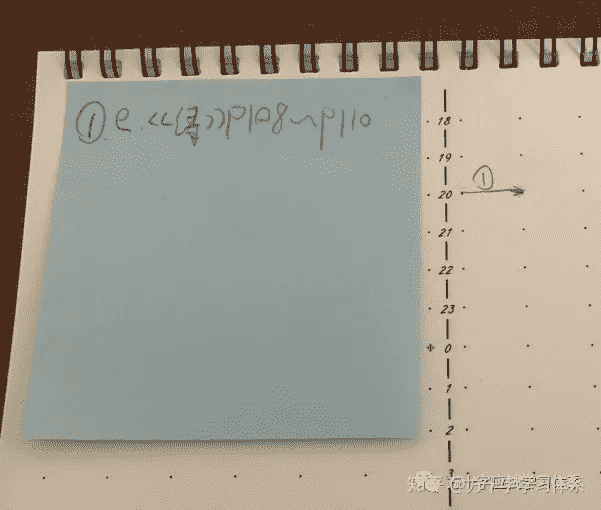 ① e. <<得>>P108~P110
18
19
20 ①
21
22
23
0
1
2
3
知乎 @十字应战学习体系